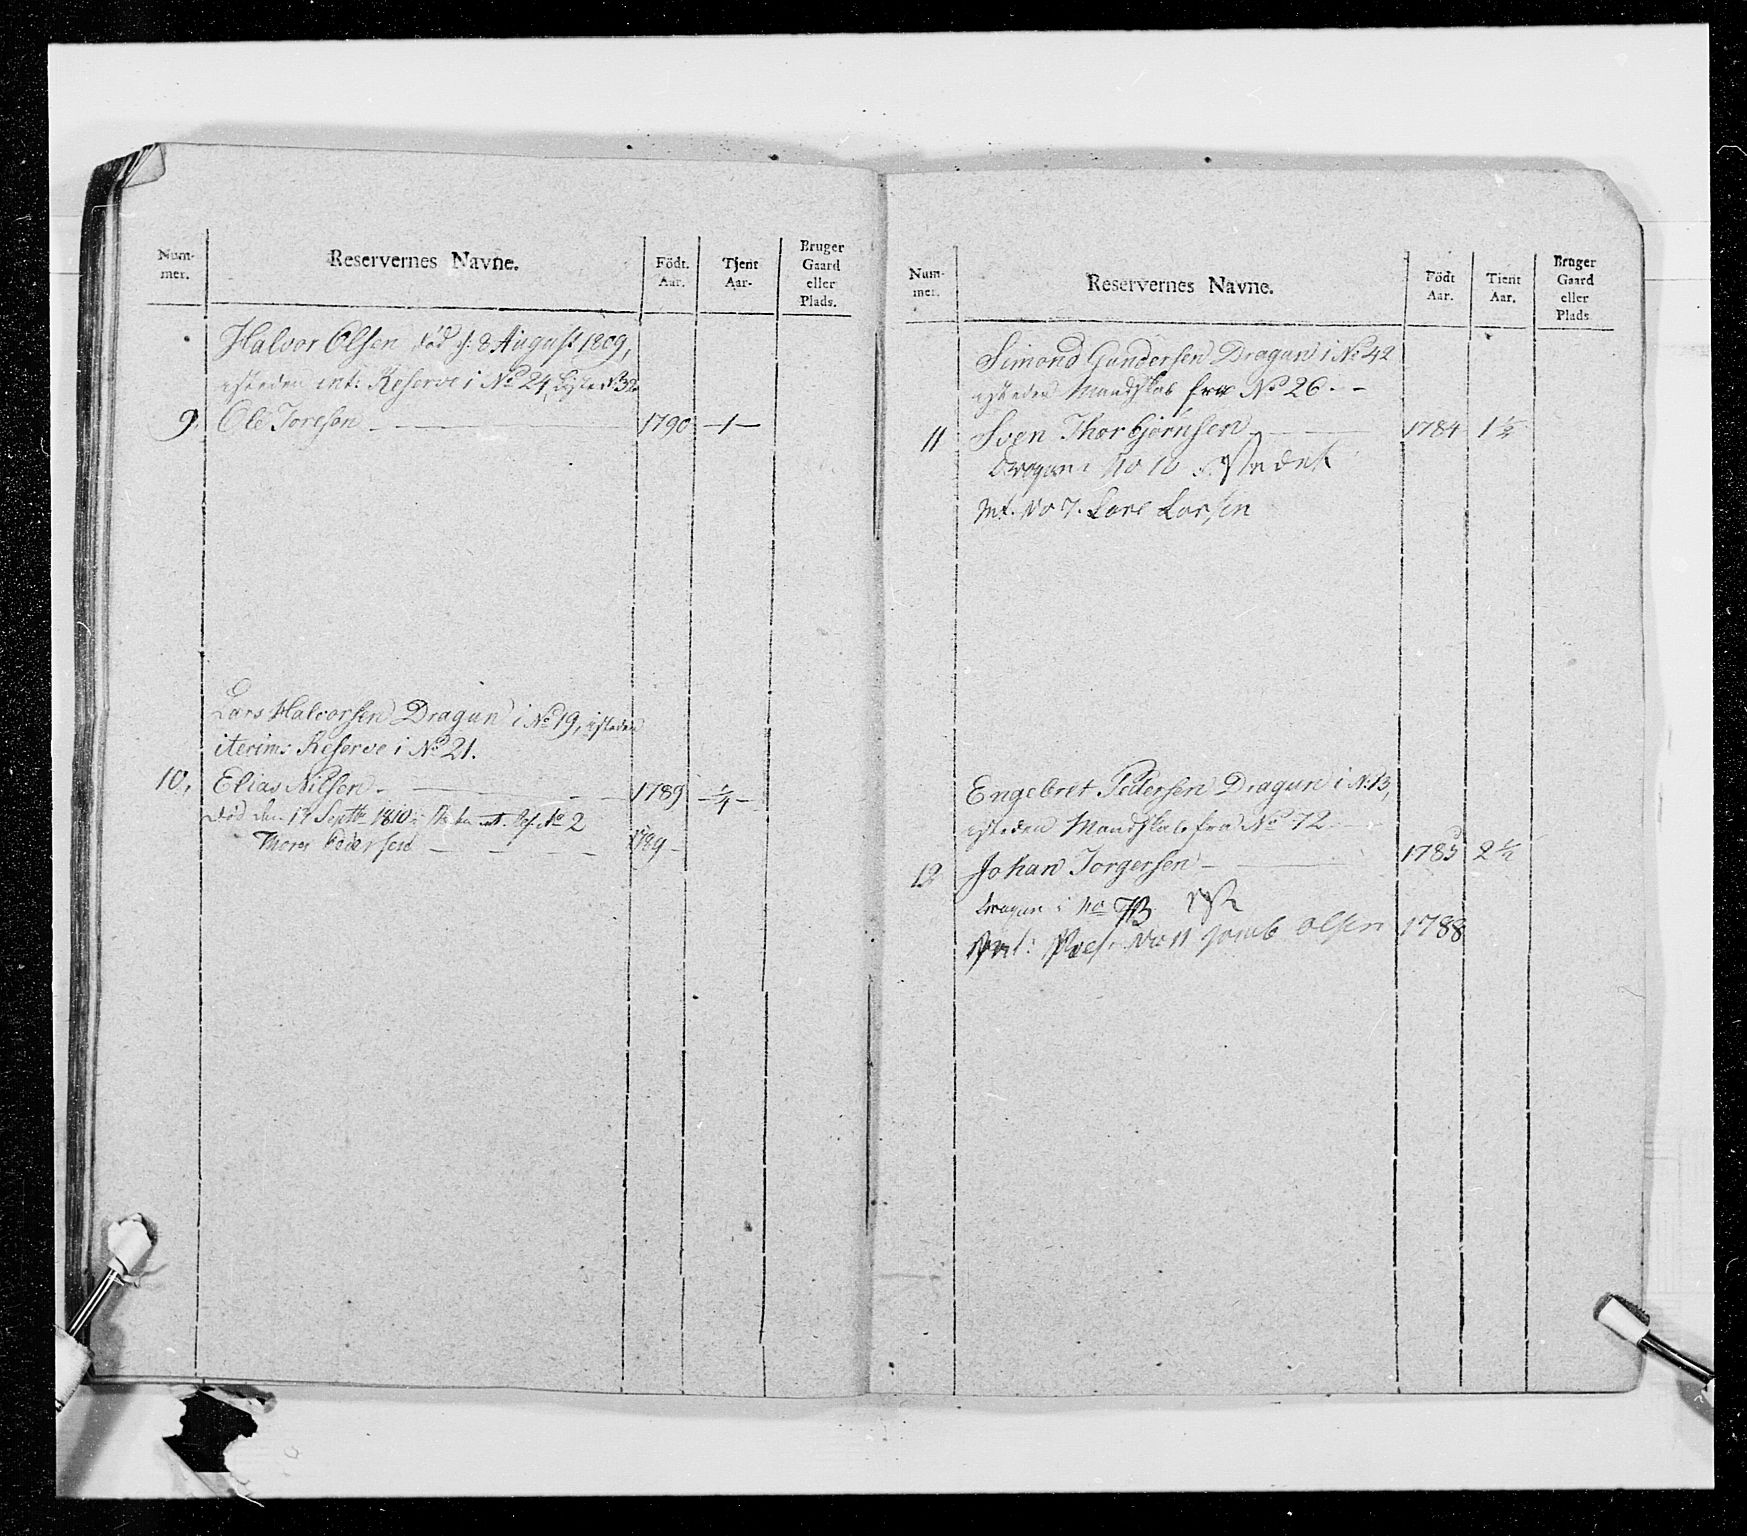 Num-
mer.
Reservernes Navne.
Födt.
Aar.
Tjent
Aar-
Bruger
Gaard
eller
Plads.
Halvor Olsen död d. 8 August 1809,
isteden int: Reserve i No 24,
9. Ole Toresen - 1790 - 1 -
Lars Halvorsen Dragun i No 19, isteden
iterims Reserve i No 21.
10. Elias Nilsen - 1789 - ¼ -
död den 17 Septbr 1810 No 2
Thores Pedersen - - - - 1789 -
Num-
mer.
Reservernes Navne.
Födt
Aar.
Tient
Aar.
Bruger
Gaard
eller
Plads
Simond Gundersen Dragun i No 42
isteden Mandskab fra No 26. -
11 Sven Thorbjørnsen - 1784 1½
Dragun i No 10 istedet
Int. No 7. Lars Larsen
Engebret Pedersen Dragun i N. 13,
isteden Mandskab fra No 72
12 Johan Jorgersen - 1785 2½
Dragun i No
Int: Res. No 11 Jacob Olsen 1788